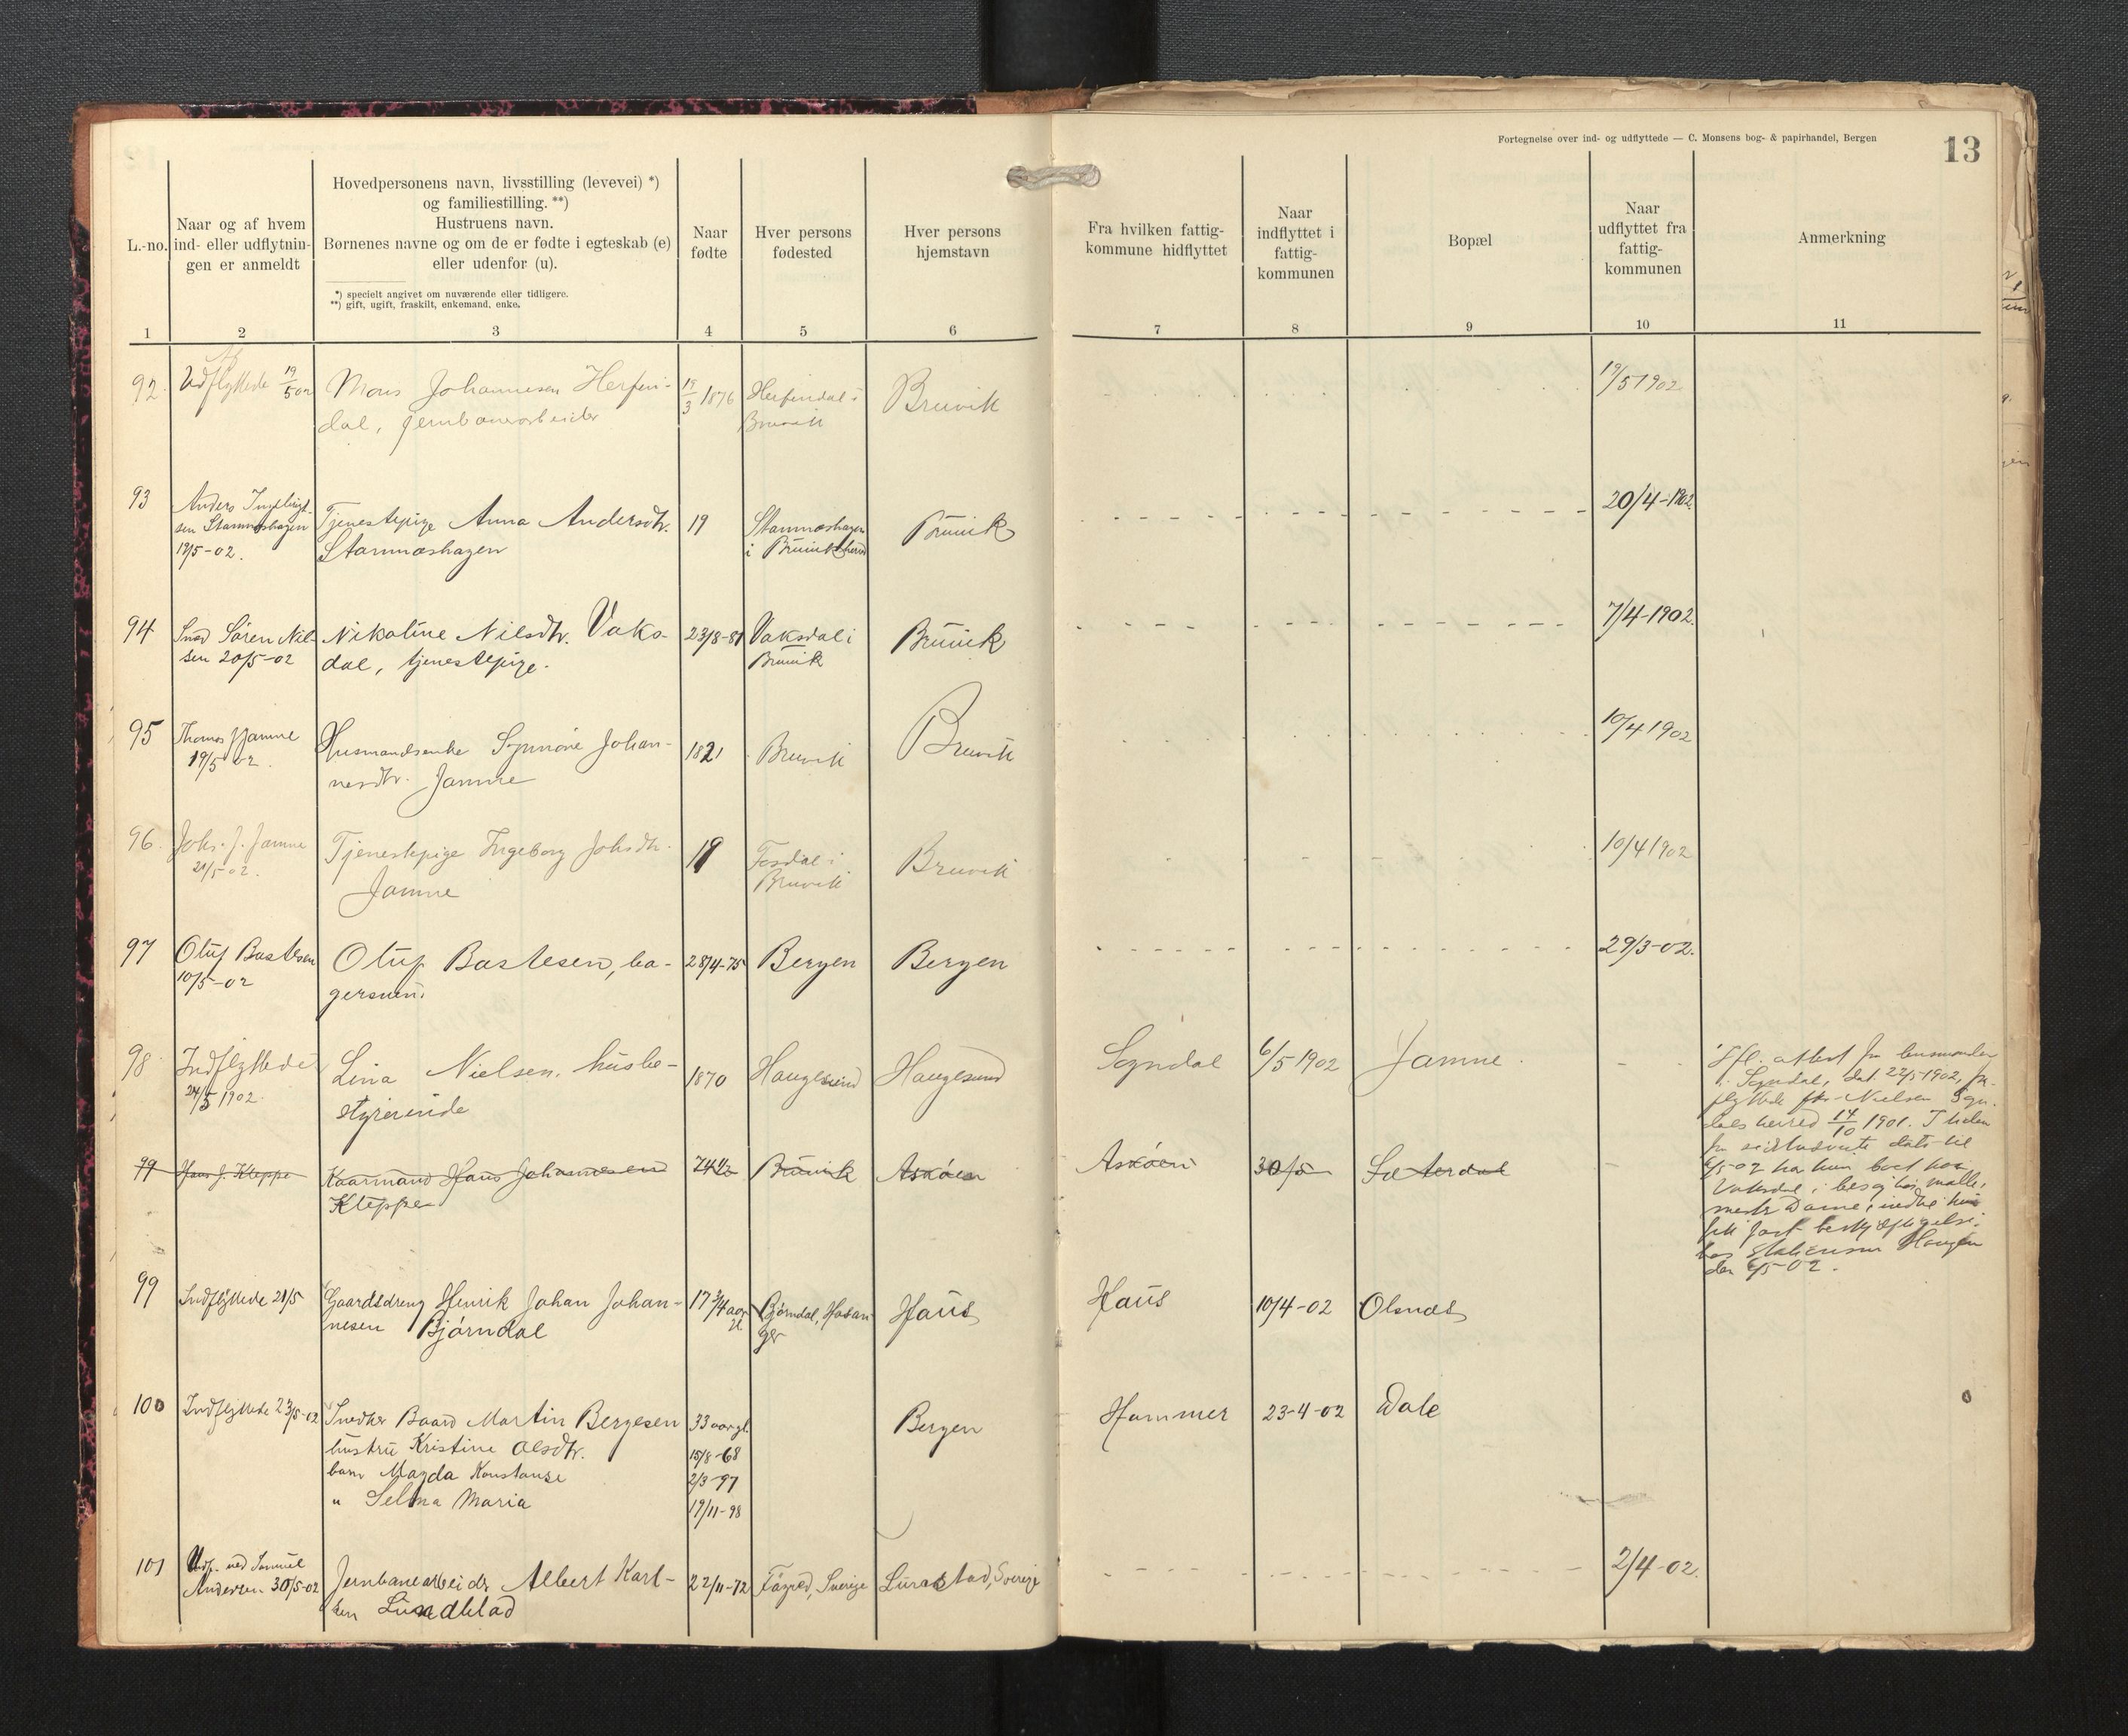 Fortegnelse over ind- og udflyttede — C. Monsens bog- & papirhandel, Bergen
13
L.-no.
Naar og af hvem
ind- eller udflytnin-
gen er anmeldt
Hovedpersonens navn, livsstilling (levevei) *)
og familiestilling. **)
Hustruens navn.
Børnenes navne og om de er fødte i egteskab (e)
eller udenfor (u).
*) specielt angivet om nuværende eller tidligere.
**) gift, ugift, fraskilt, enkemand, enke.
Naar
fødte
Hver persons
fødested
Hver persons
hjemstavn
Fra hvilken fattig-
kommune hidflyttet
Naar
indflyttet i
fattig-
kommunen
Bopæl
Naar
udflyttet fra
fattig-
kommunen
Anmerkning
1 2 3 4 5 6 7 8 9 10 11
92. Udflyttede 19/5 02 Mons Johannesen Herfin- 19/3 1876 Herfindal i Bruvik 19/5 1902
dal, jernbanearbeider Bruvik
93 Anders
sen Stamneshagen Tjenestepige Anna Andersdtr. 19 Stamneshagen Bruvik 20/4-1902.
19/5-02. Stamneshagen i Bruvik herred
94 Søren Nil- Nikoline Nilsdtr. Vaks- 23/8-81 Vaksdal i Bruvik 7/4-1902.
sen 20/5-02 dal, tjenestepige. Bruvik
95 Thomas J Jamne Husmandsenke Synnöve Johan- 1821 Bruvik Bruvik 10/4 1902
19/5 02. nesdtr. Jamne
96. Johs. J. Jamne Tjenestepige Ingeborg Johsdtr. 19 Fosdal i Bruvik 10/4 1902
21/5-02. Jamne Bruvik
97 Oluf Bastesen Oluf Bastesen, ba- 28/4-75 Bergen Bergen 29/3-02.
10/5-02 gersven.
98. Indflyttede Lina Nielsen, husbe- 1870 Haugesund Haugesund Sogndal 6/5 1902 Jamne.
24/5 1902. styrerinde
Ifl. attest fra lensmanden
i Sogndal, dat. 22/5 1902, fra-
flyttede frk. Nielsen Sogn-
dals herred 14/10 1901. I tiden
fra sidstnævnte dato til
6/5-02 har hun boet paa
Vaksdal i besøg hos
mester Dame, indtil hun
fik fast beskjæftigelse
hos Haugen
den 6/5-02.
99 Hans J. Kleppe Kaarmand Hans Johannesen 74 1/2 Bruvik Askøen Askøen 30/5 Sæterdal
Kleppe
99 Indflyttede 21/5 Gaardsdreng Henrik Johan Johan- 17 3/4 aar Bjørndal, Hosan- Haus Haus 10/4-02 Olsnæs
nesen Bjørndal gl. ger
100 Indflyttede 23/5-02 Snedker Baard Martin Bergesen 33 aar gl. Bergen Hammer 23-4-02 Dale
hustru Kristine Olsdtr. 15/8-68
barn Magda Konstanse 2/3-97
" Selma Maria 19/11-98
101 Udf. ved Samuel Jernbanearbeider Albert Karl- 22/11-72 Sverige Sverige 2/4-02.
Andersen 30/5-02 sen Lundblad